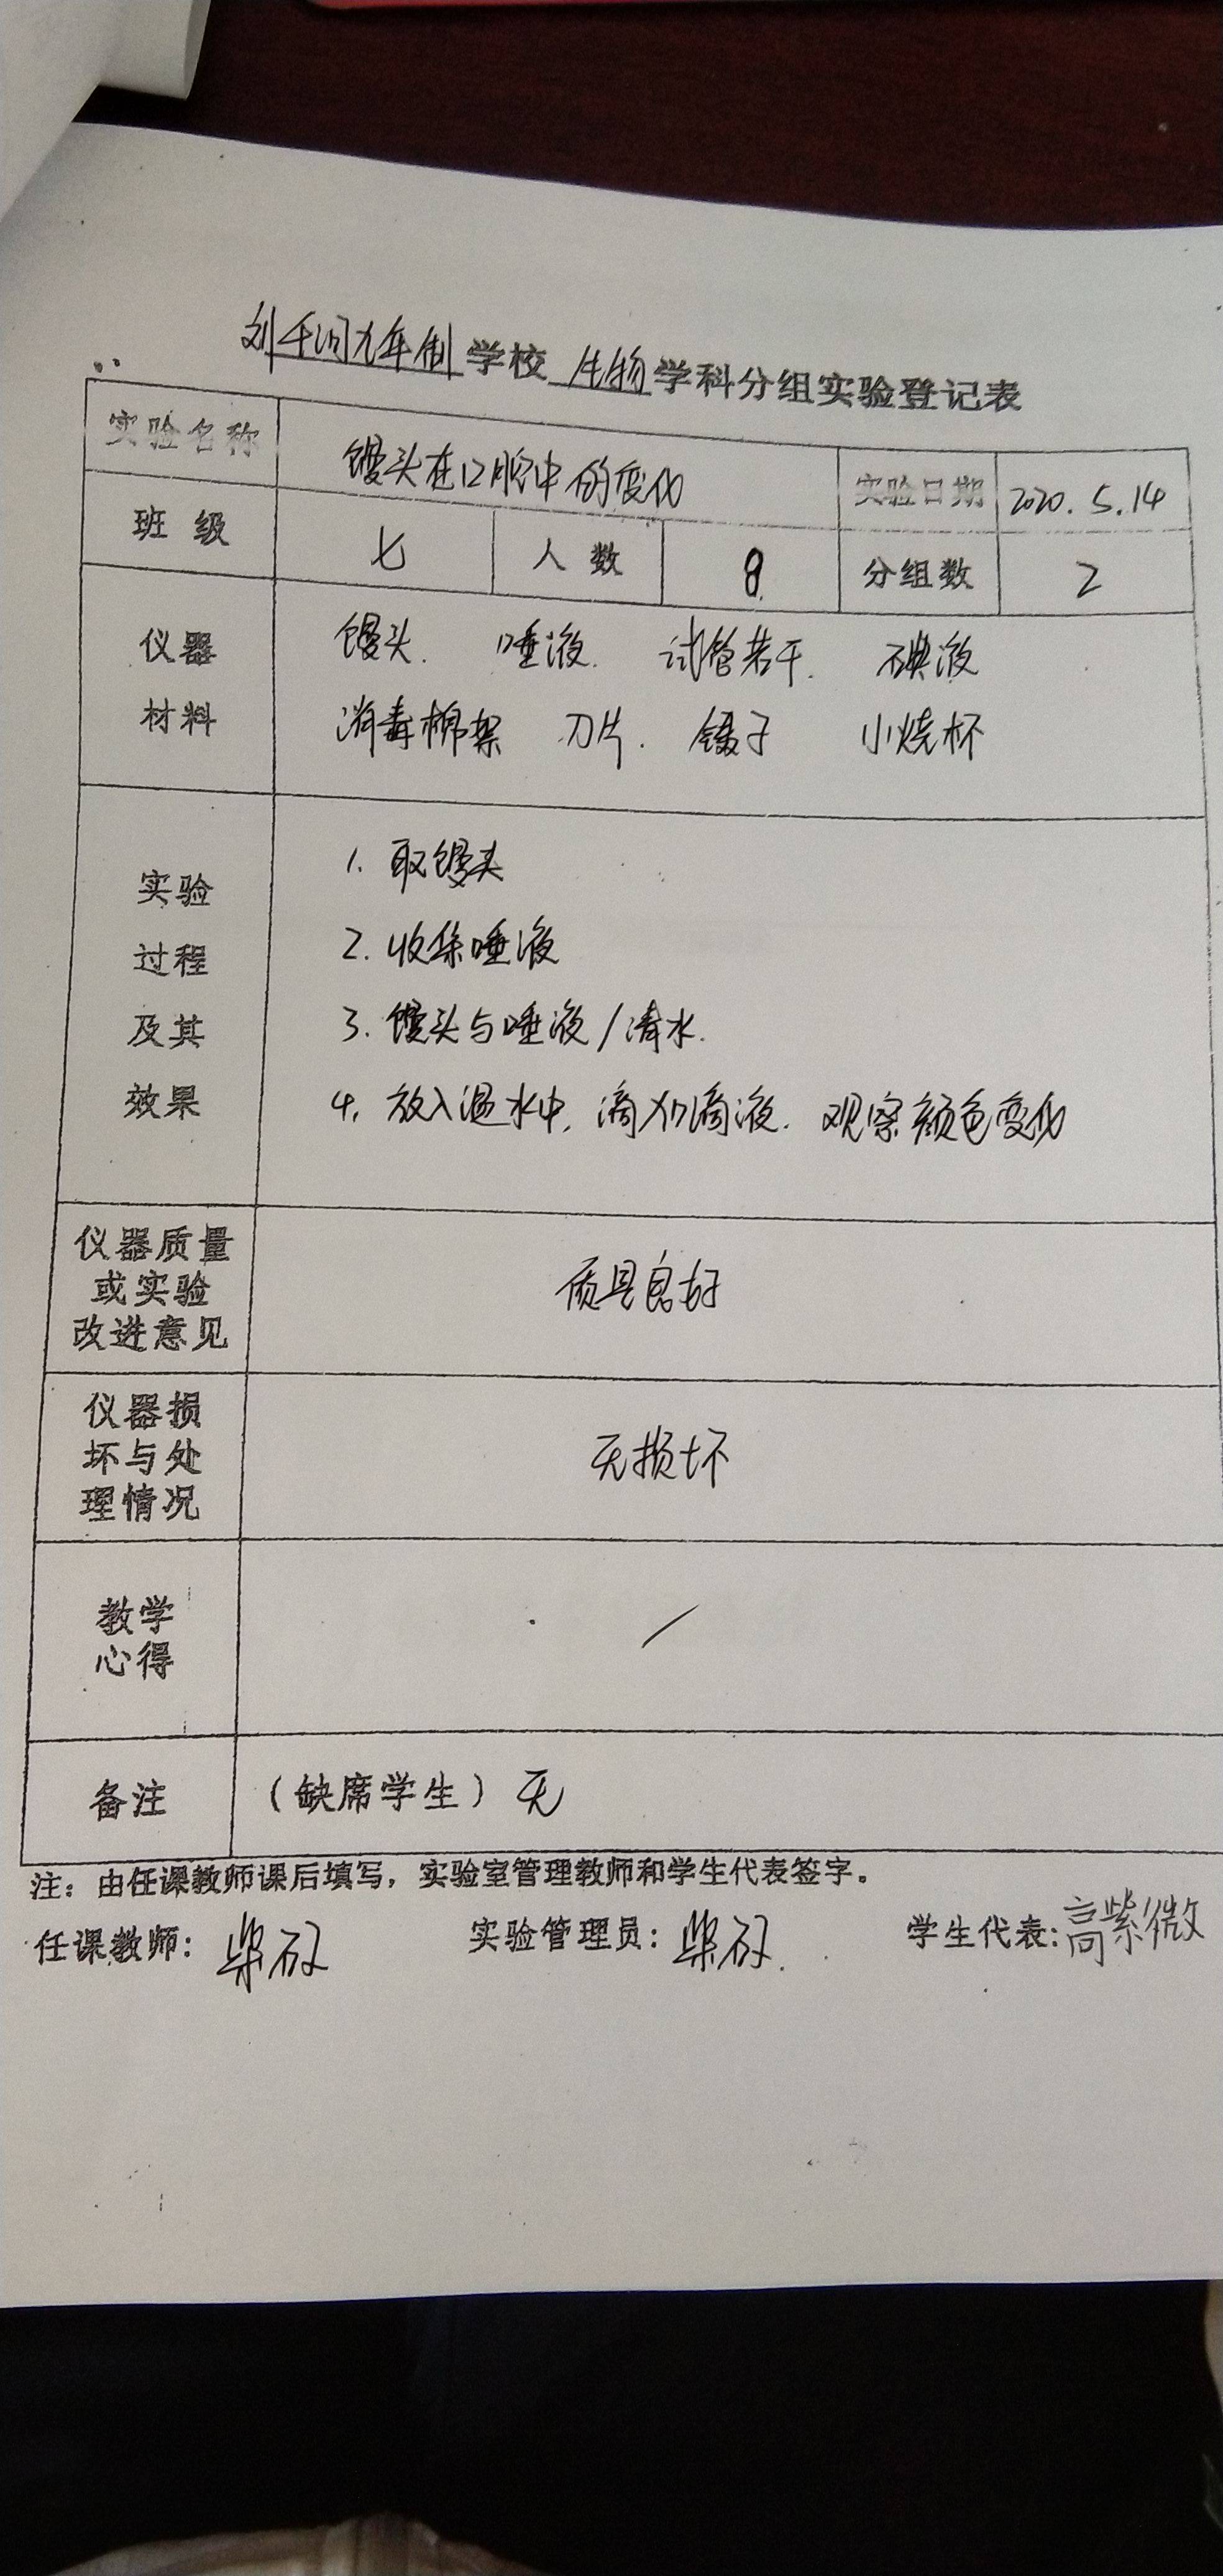 刘千河九年制学校 生物学科分组实验登记表
实验名称 馒头在口腔中的变化 实验日期 2020.5.14
班级 七 人数 8 分组数 2
仪器材料
馒头. 唾液. 试管若干. 碘液
消毒棉絮 刀片. 镊子 小烧杯
实验过程及其效果
1. 取馒头
2. 收集唾液
3. 馒头与唾液/清水.
4. 放入温水中, 滴加滴液. 观察颜色变化
仪器质量或实验改进意见
质量良好
仪器损坏与处理情况
无损坏
教学心得
/
备注 (缺席学生) 无
注：由任课教师课后填写，实验室管理教师和学生代表签字。
任课教师： 实验管理员： 学生代表:高紫微